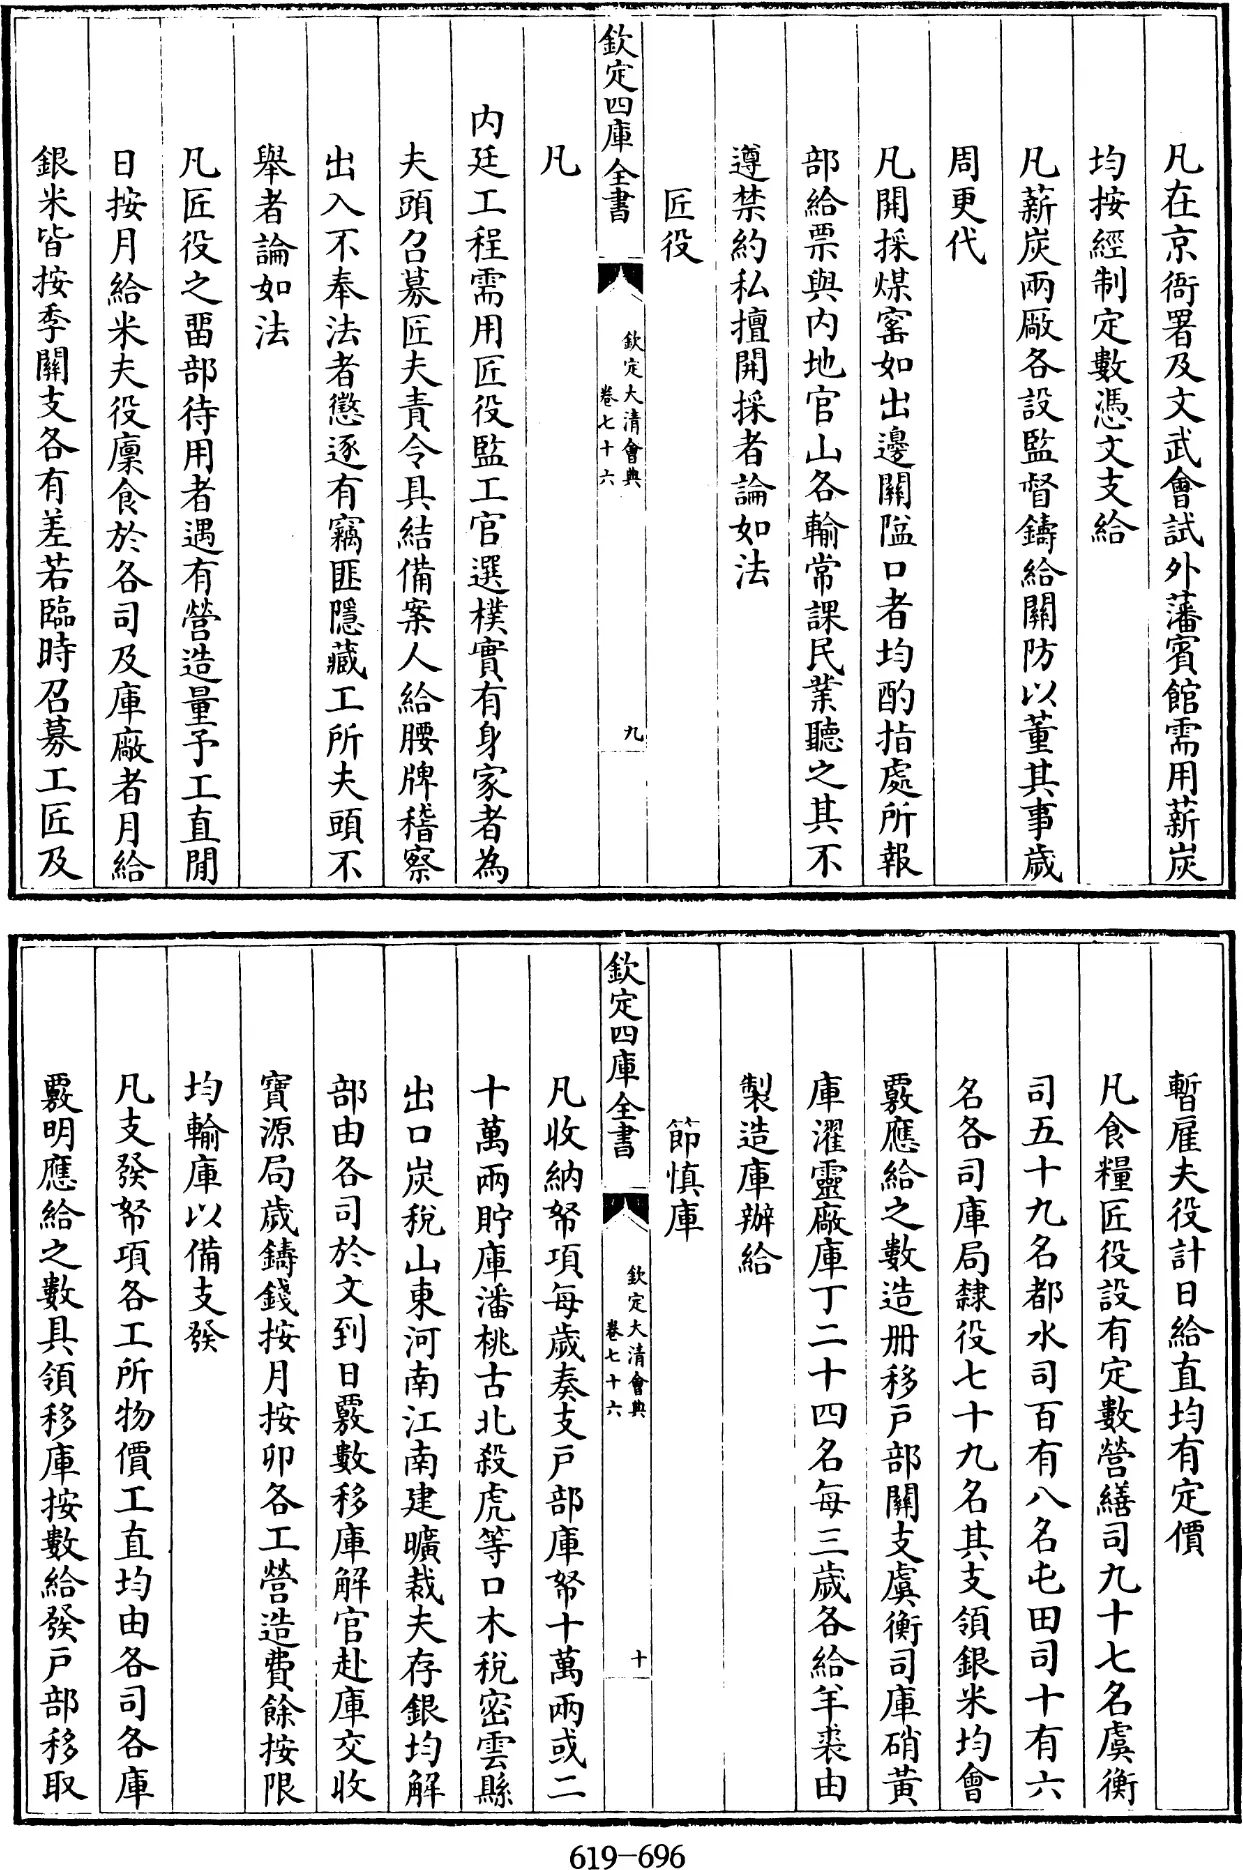 凡在京衙署及文武會試外藩賓館需用薪炭
均按經制定數憑文支給
凡薪炭兩厰各設監督鑄給關防以董其事歲
周更代
凡開採煤窰如出邊關隘口者均酌指處所報
部給票與内地官山各輸常課民業聽之其不
遵禁約私擅開採者論如法
匠役
欽定四庫全書
欽定大清會典
卷七十六
九
凡
内廷工程需用匠役監工官選樸實有身家者為
夫頭召募匠夫責令具結備案人給腰牌稽察
出入不奉法者懲逐有竊匪隱藏工所夫頭不
舉者論如法
凡匠役之畱部待用者遇有營造量予工直閒
日按月給米夫役廪食於各司及庫厰者月給
銀米皆按季關支各有差若臨時召募工匠及
暫雇夫役計日給直均有定價
凡食糧匠役設有定數營繕司九十七名虞衡
司五十九名都水司百有八名屯田司十有六
名各司庫局隸役七十九名其支領銀米均會
覈應給之數造册移戸部關支虞衡司庫硝黃
庫濯靈厰庫丁二十四名每三歲各給羊裘由
製造庫辦給
節慎庫
欽定四庫全書
欽定大清會典
卷七十六
十
凡收納帑項每歲奏支戸部庫帑十萬兩或二
十萬兩貯庫潘桃古北殺虎等口木稅密雲縣
出口炭稅山東河南江南建曠裁夫存銀均解
部由各司於文到日覈數移庫解官赴庫交收
寶源局歲鑄錢按月按卯各工營造費餘按限
均輸庫以備支發
凡支發帑項各工所物價工直均由各司各庫
覈明應給之數具領移庫按數給發戸部移取
619-696